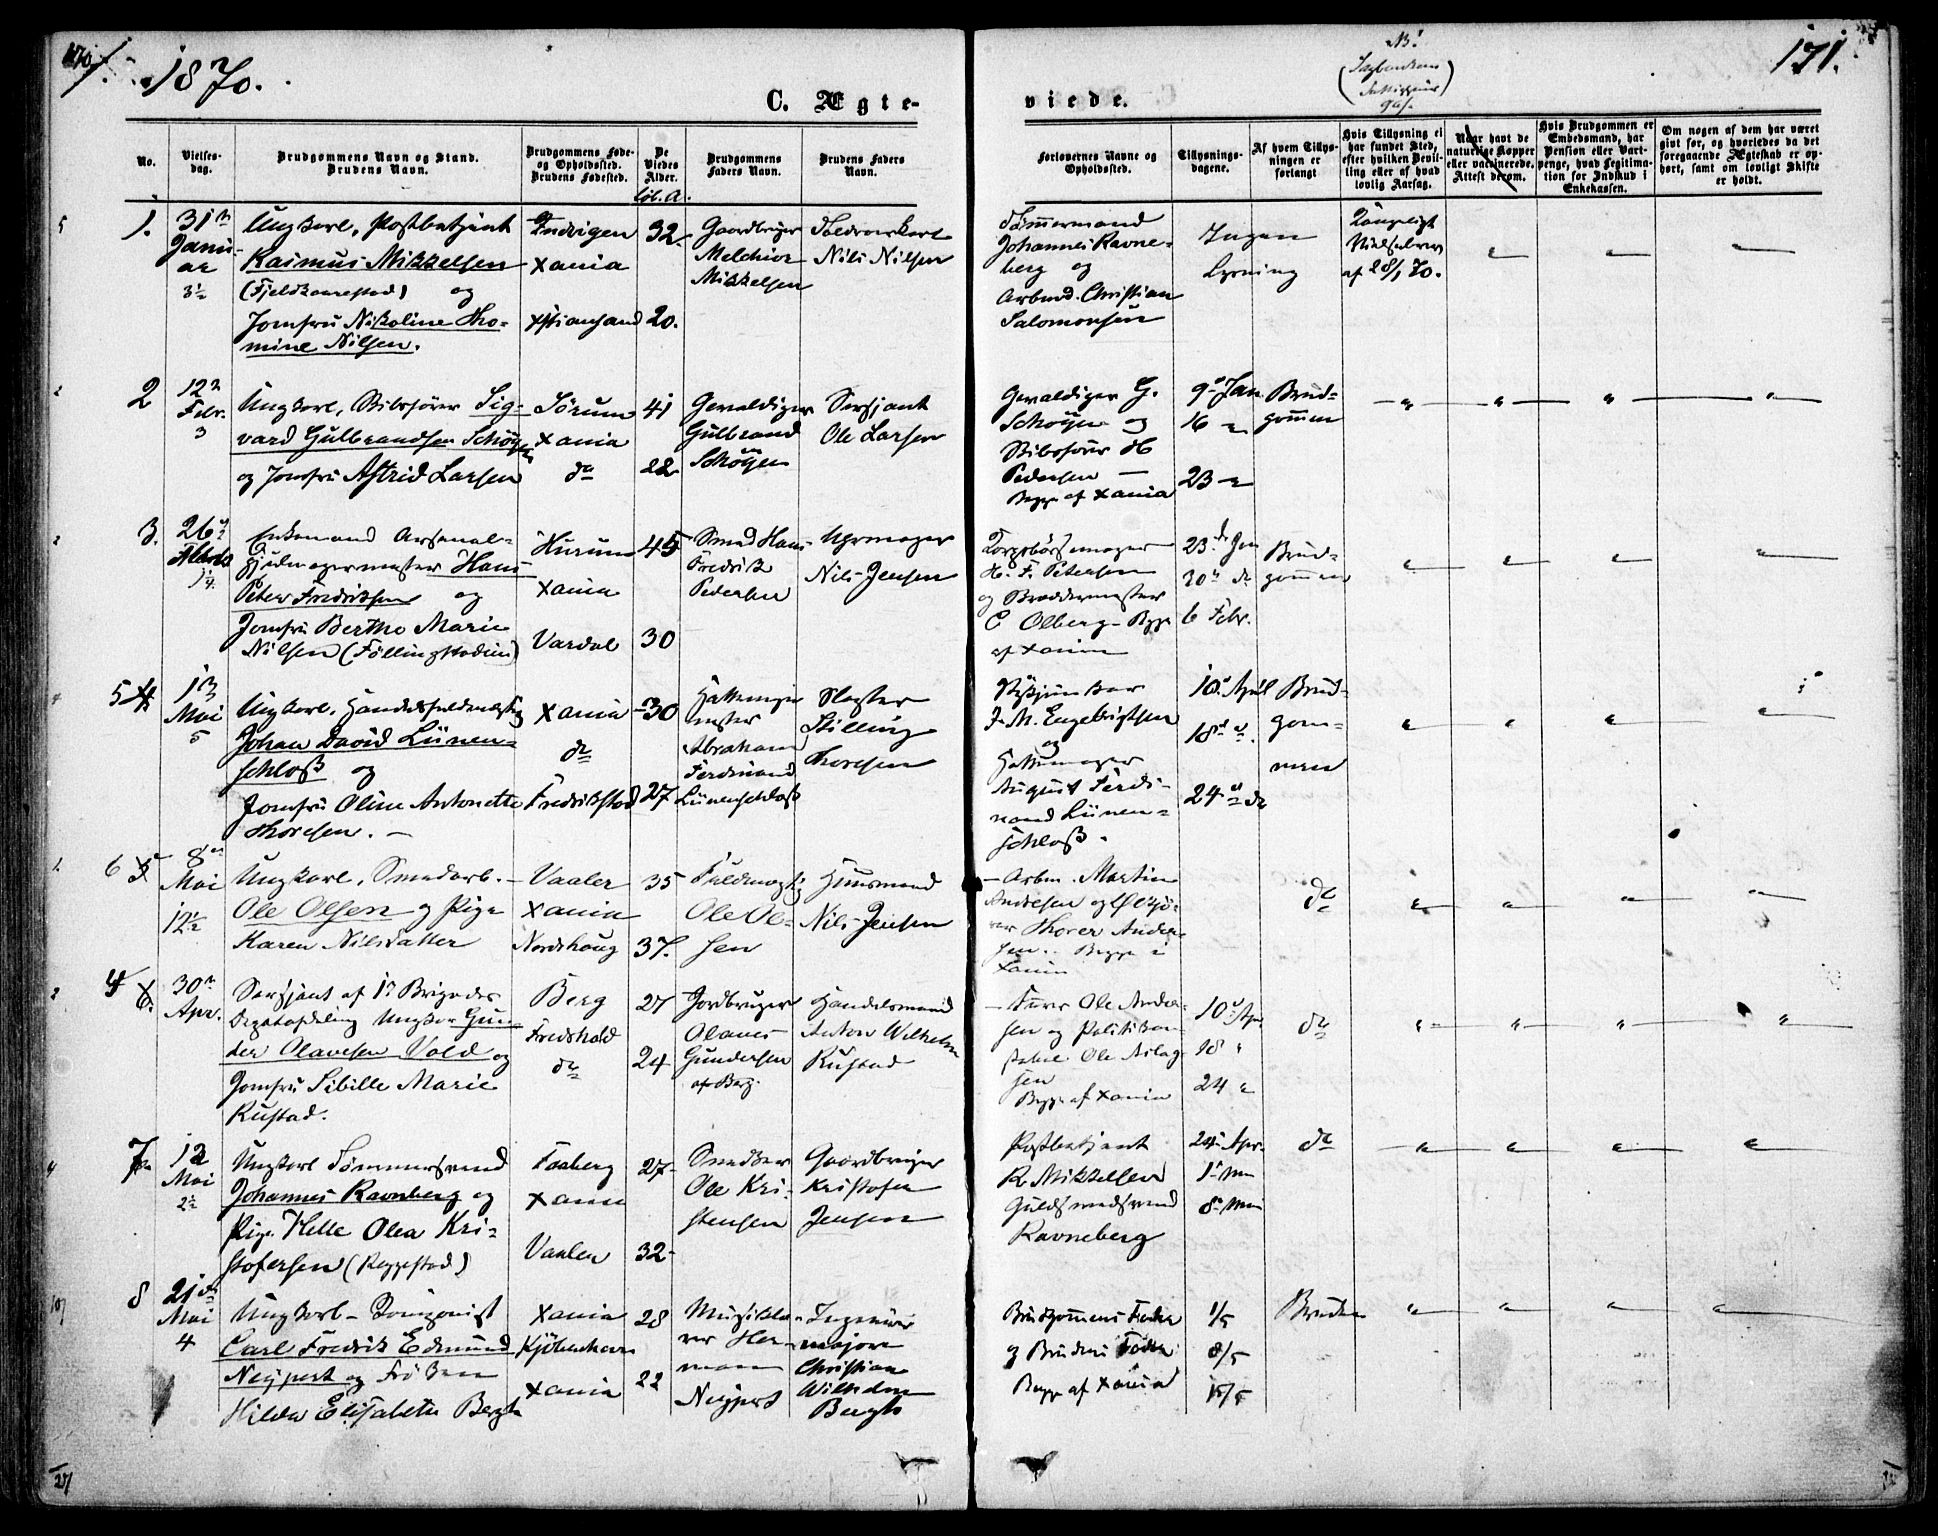 1870.
171.
C. Ægte-
viede.
No.
Vielses-
dag.
Brudgommens Navn og Stand.
Brudens Navn.
Brudgommens Føde-
og Opholdssted.
Brudens Fødested.
De
Viedes
Alder.
Brudgommens
Faders Navn.
Brudens Faders
Navn.
Forlovernes Navne og
Opholdssted.
Tillysnings-
dagene.
Af hvem Tillys-
ningen er
forlangt
Hvis Tillysning ei
har fundet Sted,
efter hvilken Bevil-
ling eller af hvad
lovlig Aarsag.
Naar havt de
naturlige Kopper
eller vaccinerede.
Attest derom.
Hvis Brudgommen er
Embedsmand, har
Pension eller Vart-
penge, hvad Legitima-
tion for Indskud i
Enkekassen.
Om nogen af dem har været
gift før, og hvorledes da det
foregaaende Ægteskab er op-
hørt, samt om lovligt Skifte
er holdt.
1.
31
Janu-
ar
Ungkarl, Postbetjent
Rasmus Mikkelsen
(Fjeldkaarestad) og
Jomfru Nikoline Tho-
mine Nilsen.
Xania
Xstiansand
32.
20.
Gaardbruger
Melchior
Mikkelsen
Nils Nilsen
Tømmermand
Johannes Ravne-
berg og
Arbmd. Christian
Salomonsen
Ingen
Lysning
Kongeligt
af 28/1 70.
2
12
Febr.
3
Ungkarl, Bibsfører Sig-
vard Gulbrandsen Schøyen
og Jomfru Astrid Larsen
Sørum
Xania
do
41
22
Gevaldiger
Gulbrand
Schøyen
Sersjant
Ole Larsen
Gevaldiger G.
Schøyen og
Pedersen
Begge af Xania
9 Jan
16 "
23 "
Brud-
gommen
3.
26
Enkemand Arsenal-
hjulmagermester Hans
Peter Fredriksen og
Jomfru Berthe Marie
Nilsen (Føllingstadeie)
Hurum
Xania
Vardal
45
30
Smed Hans
Fredrik
Pedersen
Uhrmager
Nils Jensen
H. F. Petersen
og
C Olberg - Begge
af Xania
23 Jan
30 do
6 Febr.
Brud-
gommen
5
1
Mai
5
Ungkarl, Handelsfuldmægtig
Johan David Lünen-
schloß og
Jomfru Oline Antonette
Thoresen.
Xania
do
Fredrikstad
30
27
Hattemager
mester
Abraham
Ferdinand
Lünenschloß
Slagter
Stilling
Thoresen
J. M. Engebrigtsen
og
Hattemager
August Ferdi-
nand Lünen-
schloß.
10 April
18 "
24 do
Brud-
gom-
men
6
8
Mai
12½
Ungkarl, Smedarb.
Ole Olsen og Pige
Karen Nilsdatter
Vaaler
Xania
Nordshoug
35
37.
Fuldmægtig
Ole Ol-
sen
Huusmand
Nils Jensen
Arbm. Martin
Andresen og
Thorer Ander-
sen. Begge i
Xania
do
4
30
Apr.
Sersjant af 1 Brigades
Ungkar Gun-
der Olavesen Vold og
Jomfru Sibille Marie
Rustad.
Berg
Fredshald
do
27
24
Jordbruger
Olaves
Gundersen
af Berg.
Handelsmand
Anton Wilhelm
Rustad
Furer Ole Ander-
sen og Politikon-
stabel Ole Aslag-
sen
Begge af Xania
10 Apr
18 "
24 "
do
7
12
Mai
2½
Ungkarl Tømmersvend
Johannes Ravneberg og
Pige Helle Olea Kri-
stofersen (Reggestad)
Faaberg
Xania
Vaaler
27
32
Smed
Ole Kri-
stensen
Gaardbruger
Kristofer
Jensen
Postbetjent
R Mikkelsen
Guldsmedsvend
Ravneberg
24 Apr.
1 Mai
8 Mai
do
8
21
Mai
4
Ungkarl - Komponist
Carl Fredrik Edmund
Neupert og Frøken
Hilda Elisabeth Bergh
Xania
Kjøbenhavn
Xania
28
22
Musiklæ-
rer Her-
mann
Neupert
Ingeniør
majoren
Christian
Wilhelm
Bergh
Brudgommens Fader
og Brudens Fader
Begge af Xania
1/5
8/5
15/5
Bruden